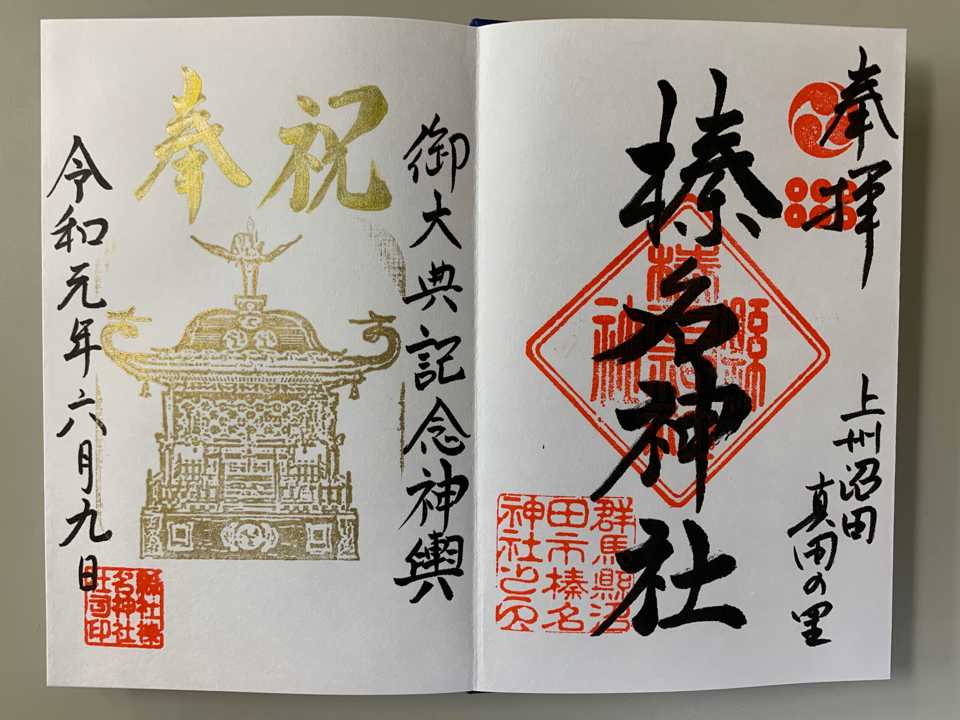 奉拝
榛名神社
上州沼田
真田の里
群馬縣沼
田市榛名
神社之印
奉祝
御大典記念神輿
令和元年六月九日
縣社榛
名神社
社司印